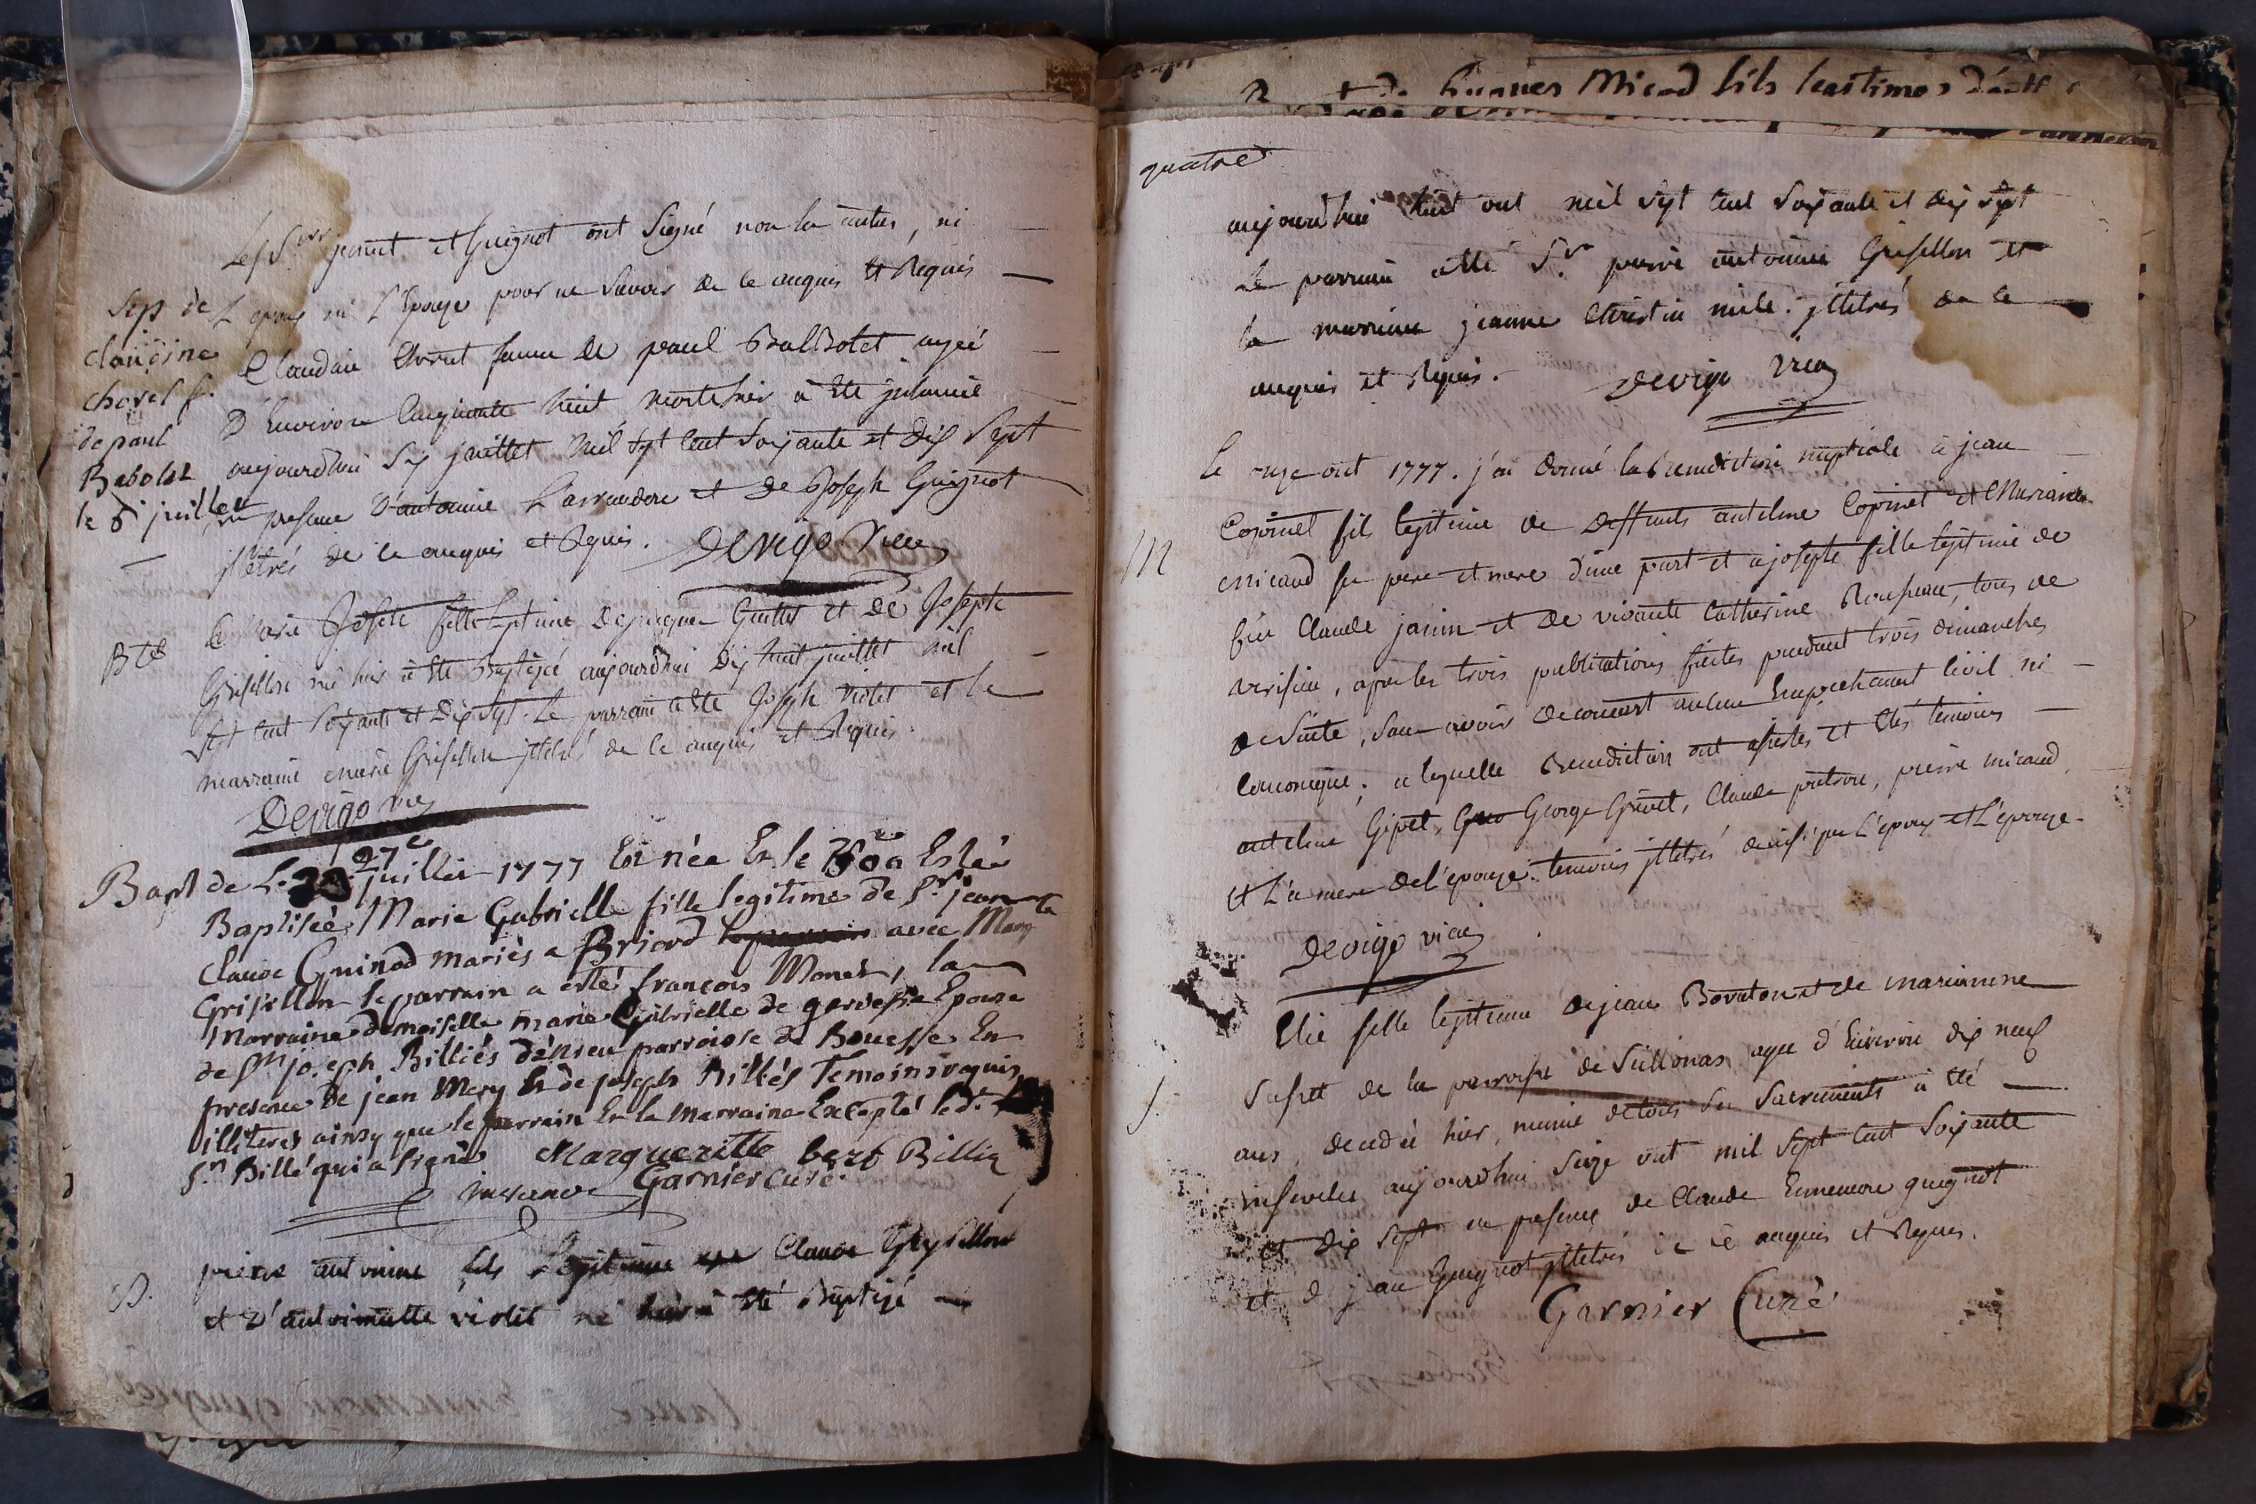 Les Srs jennet et Guignot ont signé non les autres, ni
L'epoux ni L'Epouse pour ne savoir de ce enquis et Requis
Sep de
claudine
chorel f.
de paul
Babolat
le 6e juillet
Claudine chorel femme de paul Balbolet agée
D'Environ cinquante huit morte hier a été inhumée
aujourdhui six juillet mil sept cent soixante et dix sept
en presence d'antoine Larrendon et de Joseph Guignot
illetrés de ce enquis et Requis. Devigo Vicre
Bte
Marie Josete fille leptime de jacques Guillot et de Josepte
Grisellon né hier a été Baptizée aujourdhui Dix huit juillet mil
sept cent soixante et Dix sept. Le parrain a été Joseph violet et la
marraine marie Grisellon illetrés de ce enquis et Requis.
Devigo vic
Bapt de L. 27e juillet 1777 Est née Et le Esté
Baptiséé Marie Gabrielle fille legitime de Sr jean
Claude Guinod mariés a Briord avec Marg
Grisillon le parrain a esté françois Monet, la
Marraine demoiselle marie Gabrielle de gervesse Epouse
de Sr joseph Billiés dénieu parroisse de Bouesse En
presence de jean Mery Et de joseph Billiés Temoins requis
illiteres ainsy que le parrain Et la marraine Excepté led.
Sr Billié qui a signés Margueritte bert Billia
Garnier curé
B.
pierre antoine fils legitime de Claude Grysellon
et d'antoinette violet né hier a été Baptizé
quatre
aujourdhui huit out mil sept cent soixante et dix sept
Le parrain a été Sr pierre antoine Grisellon et
la marraine jeanne Christin mile. illetrés de ce
enquis et Requis. Devigo Vica
M
Le onze out 1777. j'ai donné la Benediction nuptiale a jean
Copinet fils legitime de deffunts antelme Copinet et Marianne
micaud ses pere et mere d'une part et a josepte fille legitime de
feu Claude janin et de vivante Catherine Rousseau, tous de
verisieu, apres les trois publications faites pendant trois dimanches
de suite, sans avoir decouvert aucun Empechement civil ni
canonique; a laquelle Benediction ont assistes et étés temoins
antelme Gipet, George Grivet, Claude poitron, pierre micaud
et L'a mere de l'epouse. temoins illetrés ainsi que L'epoux et L'épouse.
Devigo vicai
S.
Elie fille legitime de jean Bovaton et de marianne
Susett de la parroisse de Sillonas agée d'Environ dix neuf
ans, decedée hier, munie de tous ses sacrements a été
insevelie aujourdhui seize out mil sept cent soixante
et dix sept en presence de Claude Ennemond guignot
et de jean Guignot illetrés de ce enquis et Requis.
Garnier Curé